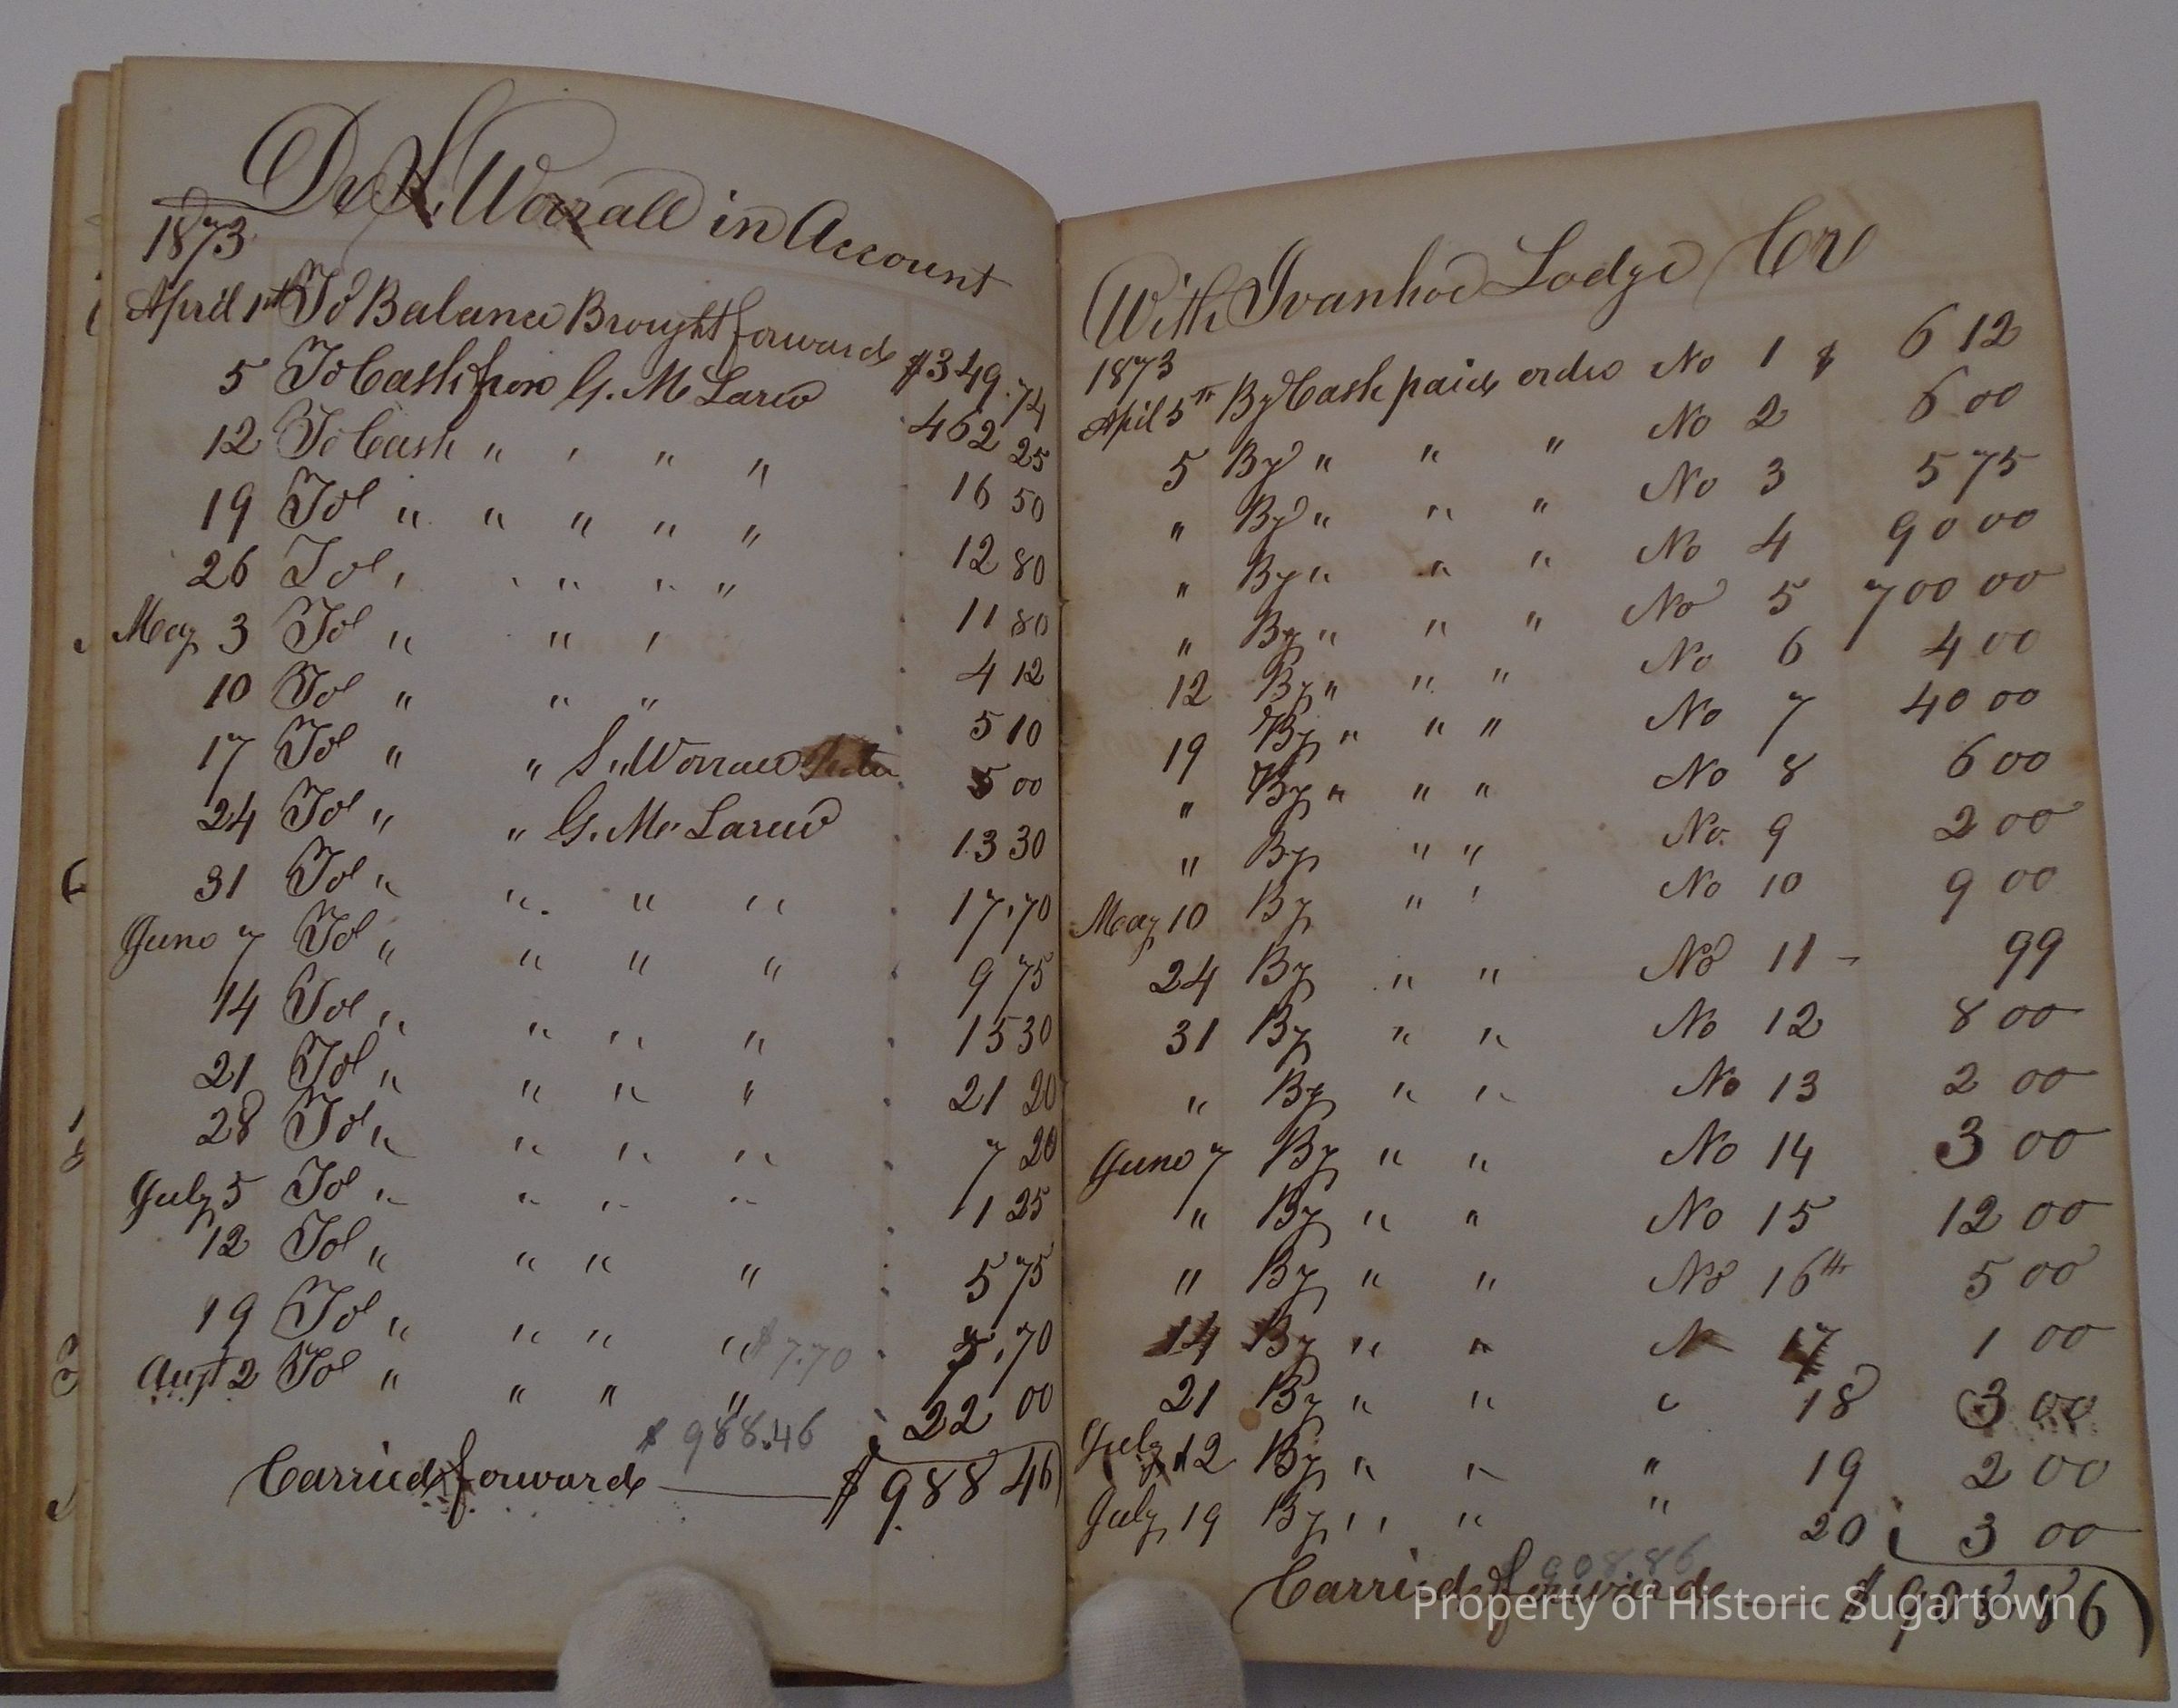 Dr S. Worrall in Account
1873
April 1st To Balance Brought forward $349.74
5 To Cash from G. M Larew 462 25
12 To Cash " " " " 16 50
19 To " " " " " " 12 80
26 To " " " " " 11 80
May 3 To " " " 4 12
10 To " " " 5 10
17 To " " S. Worraw 5 00
24 To " " G. M. Larew 13 30
31 To " " " " 17.70
June 7 To " " " " 9 75
14 To " " " " 15 30
21 To " " " " 21 20
28 To " " " " 7 20
July 5 To " " " " 1 25
12 To " " " " 5 75
19 To " " " " $7.70 7.70
Augt 2 To " " " " 22 00
$988.46
Carried forward $988 46
With Ivanhoe Lodge Cr
1873
April 5th By Cash paid order No 1 $ 6 12
5 By " " " No 2 6 00
" By " " " No 3 5 75
" By " " " No 4 90 00
" By " " " No 5 700 00
12 By " " " No 6 4 00
19 By " " " No 7 40 00
" By " " " No 8 6 00
" By " " No. 9 2 00
May 10 By " " No 10 9 00
24 By " " No 11 - 99
31 By " " No 12 8 00
" By " " No 13 2 00
June 7 By " " No 14 3 00
" By " " No 15 12 00
" By " " No 16th 5 00
14 By " " N 17 1 00
21 By " " " 18 3 00
July 12 By " " " 19 2 00
July 19 By " " " 20 3 00
908.86
Carried forward $908 86
Property of Historic Sugartown